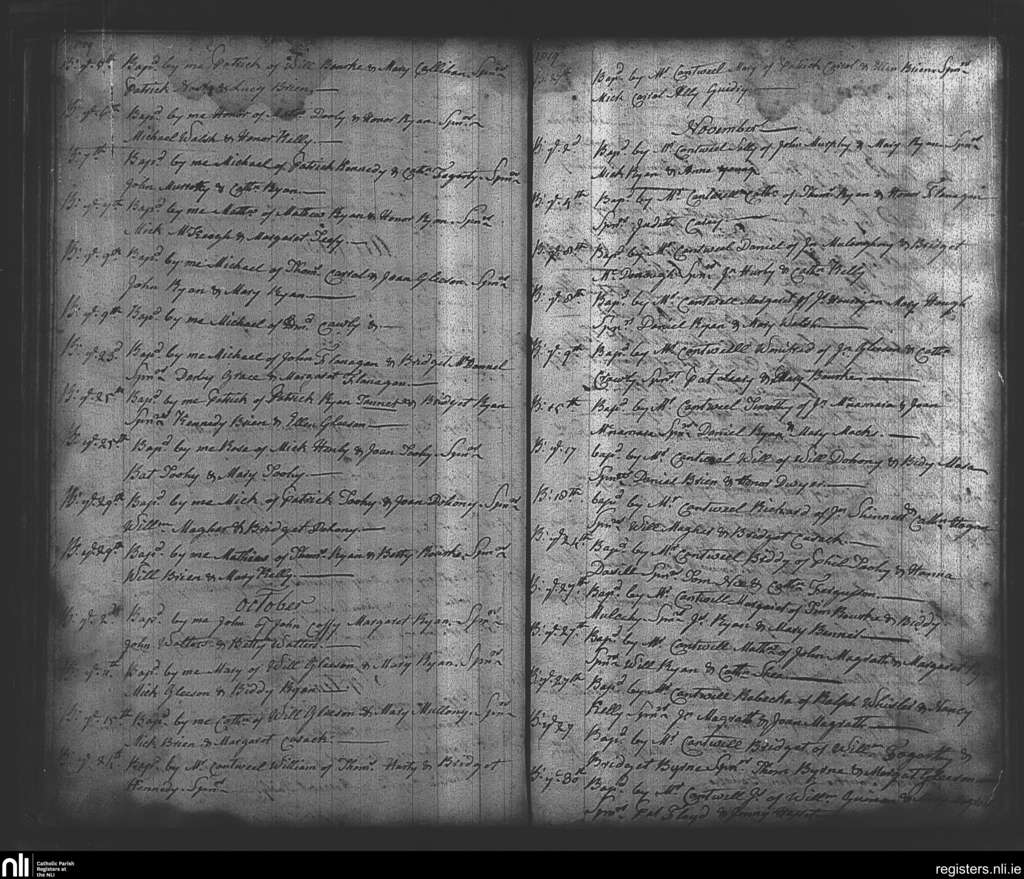 B: ye. 5th Bapd. by me Patrick of Will Bourke & Mary Callihan. Spnrs
Patrick & Lucy Brien
B: ye. 6th Bapd. by me Honor of Dooly & Honor Ryan. Spnrs
Michael Walsh & Honor Kelly.
B: 7th Bapd. by me Michael of Patrick Kennedy & Cathn. Fogarty. Spnrs
John & Cathn. Ryan
B: ye. 7th Bapd. by me Mathw. of Mathew Ryan & Honor Ryan. Spnrs
Mick McKeogh & Margaret
B: ye. 9th Bapd. by me Michael of Thoms. Carrol & Joan Gleeson. Spnrs
John Ryan & Mary Ryan
B: ye. 9th Bapd. by me Michael of Cawly &
B: ye. 23d Bapd. by me Michael of John Flanagan & Bridget McDonnel
Spnrs Darby Grace & Margaret Flanagan.
B: ye. 25th Bapd. by me Patrick of Patrick Ryan & Bridget Ryan
Spnrs Kennedy Brien & Ellen Gleeson
B: ye. 25th Bapd. by me Rosa of Mick Harty & Joan Toohy. Spnrs
Bat Toohy & Mary Toohy.
B: ye. 29th Bapd. by me Mick of Patrick Toohy & Joan Dohony. Spnrs
Willm. Magher & Bridget Dohony.
B: ye. 29th Bapd. by me Mathew of Thoms. Ryan & Betty Rourke. Spnrs
Will Brien & Mary Kelly.
October
B: ye. 2d Bapd. by me John of John Coffy Margaret Ryan. Spnrs
John Watters & Betty Watters.
B: ye. 11. Bapd. by me Mary of Will Gleeson & Mary Ryan. Spnrs
Mick Gleeson & Biddy Ryan
B: ye. 15th Bapd. by me Cathn. of Will Gleeson & Mary Mullony. Spnrs
Mick Brien & Margaret Cusack.
B: ye. Bapd. by Mr. Cantwell William of Thoms. Harty & Bridget
Kennedy. Spnrs
1819
Bapd. by Mr. Cantwell Mary of Patrick Carrol & Ellen Brien Spnrs
Mick Carrol
November
B: ye. 2d Bapd. by Mr. Cantwell of John Murphy & Mary Ryan. Spnrs
Mick Ryan & Anne
B: ye. 4th Bapd. by Mr. Cantwell Cathn. of Thoms. Ryan & Honor Flanagan
Spnrs Judith Casey
B: ye. 8th Bapd. by Mr. Cantwell Daniel of Jn. & Bridget
Mc Spnrs Jn. Hurly & Cathn. Kelly
B: ye. 8th Bapd. by Mr. Cantwell Margaret of Jn. Mary Hough
Spnrs Daniel Ryan & Mary Walsh
B: ye. 9th Bapd. by Mr. Cantwell Winifred of Jn. Gleeson & Cathn.
Cawly Spnrs Pat Leary & Mary Bourke
B: 15th Bapd. by Mr. Cantwell Timothy of Jn. Mnamara & Joan
Mnamara Spnrs Daniel Ryan & Mary Mack.
B: ye. 17 bapd. by Mr. Cantwel Will of Will Dohony & Bidy Mara
Spnrs Daniel Brien & Honor Dwyer
B: 18th bapd. by Mr. Cantwell Richard of Jn. Skinnet & Cathn. Hogan
Spnrs Will Magher & Bridget Cusack.
B: ye. 24th Bapd. by Mr. Cantwell Biddy of Toohy & Hanna
Spnrs Tom & Cathn. Ferguson
B: ye. 27th Bapd. by Mr. Cantwell Margaret of Tom Bourke & Biddy
Mulcahy Spnrs Jn. Ryan & Mary Bennet
B: ye. 27th Bapd. by Mr. Cantwell Mathw. of John Magrath & Margaret
Spnrs Will Ryan & Cathn. Shea
B: ye. 27th Bapd. by Mr. Cantwell Rebecka of Ralph & Nancy
Kelly Spnrs Jn. Magrath & Joan Magrath
B: ye. 29 Bapd. by Mr. Cantwell Bridget of Willm. Fogarthy &
Bridget Byrne Spnrs Thoms Byrne & Margat Gleeson
B: ye. 30th Bapd. by Mr. Cantwell Jn. of Willm. &
Spnrs Pat Floyd &
nli
Catholic Parish
Registers at
the NLI
registers.nli.ie